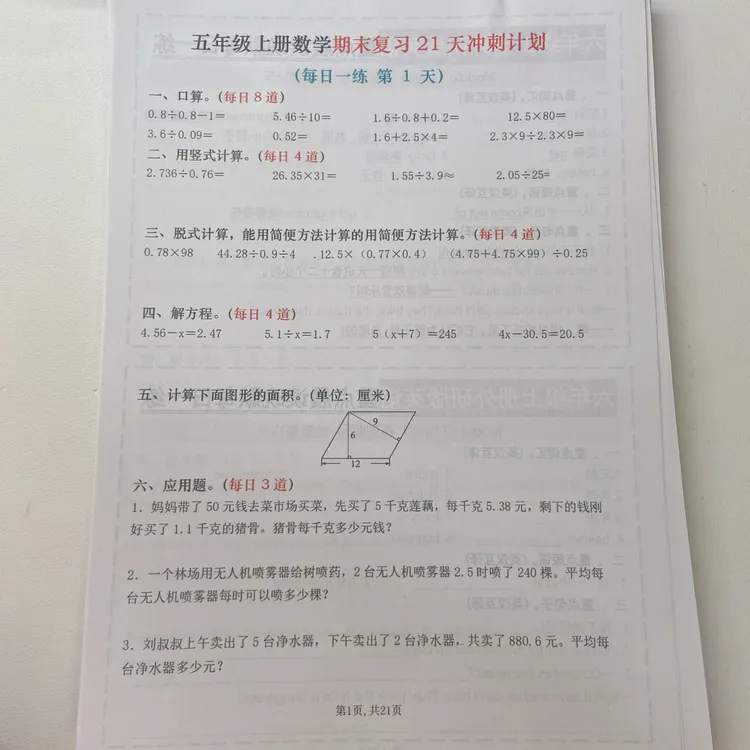 五年级上册数学期末复习21天冲刺计划
(每日一练 第 1 天)
一、口算。(每日8道)
0.8÷0.8−1= 5.46÷10= 1.6÷0.8+0.2= 12.5×80=
3.6÷0.09= 0.52= 1.6+2.5×4= 2.3×9÷2.3×9=
二、用竖式计算。(每日4道)
2.736÷0.76= 26.35×31= 1.55÷3.9≈ 2.05÷25=
三、脱式计算，能用简便方法计算的用简便方法计算。(每日4道)
0.78×98 44.28÷0.9÷4 .12.5×(0.77×0.4) (4.75+4.75×99)÷0.25
四、解方程。(每日4道)
4.56−x=2.47 5.1÷x=1.7 5(x+7)=245 4x−30.5=20.5
五、计算下面图形的面积。(单位：厘米)
9
6
12
六、应用题。(每日3道)
1. 妈妈带了50元钱去菜市场买菜，先买了5千克莲藕，每千克5.38元，剩下的钱刚
好买了1.1千克的猪骨。猪骨每千克多少元钱？
2. 一个林场用无人机喷雾器给树喷药，2台无人机喷雾器2.5时喷了240棵。平均每
台无人机喷雾器每时可以喷多少棵？
3. 刘叔叔上午卖出了5台净水器，下午卖出了2台净水器，共卖了880.6元。平均每
台净水器多少元？
第1页，共21页